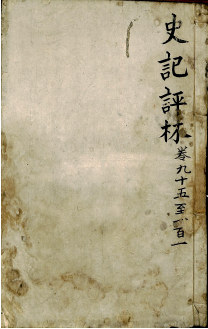 史記評林卷九十五至一百一